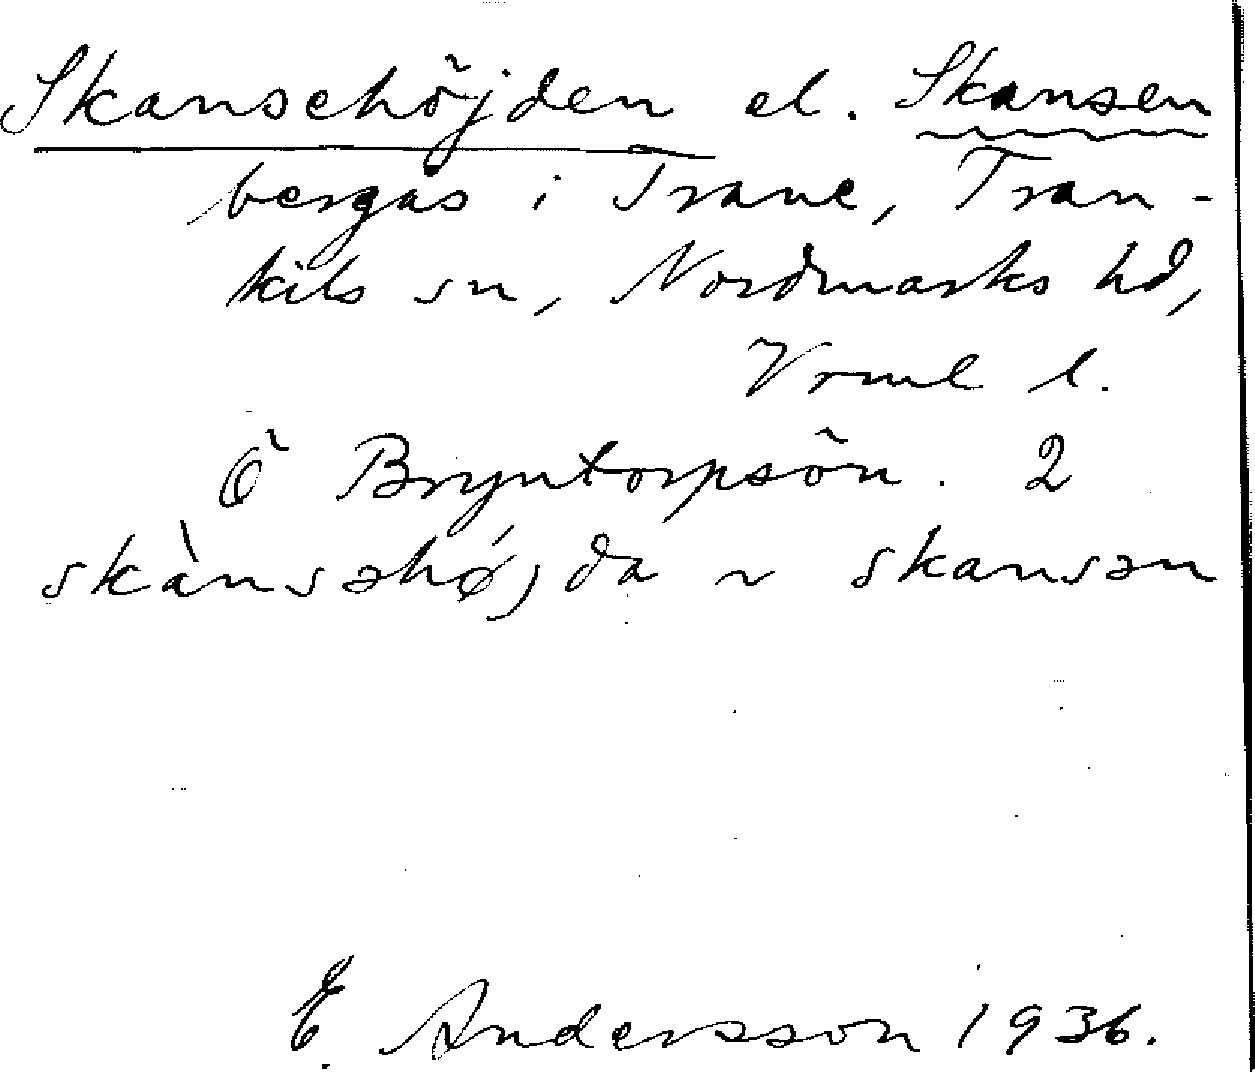 Skansehöjden el. Skansen
bergås i Trane, Tran-
kils sn, Nordmarks hd,
Vrml l.
Ö Bryntorpsön. 2
skànsəhǿjda ~ skansən
E. Andersson 1936.